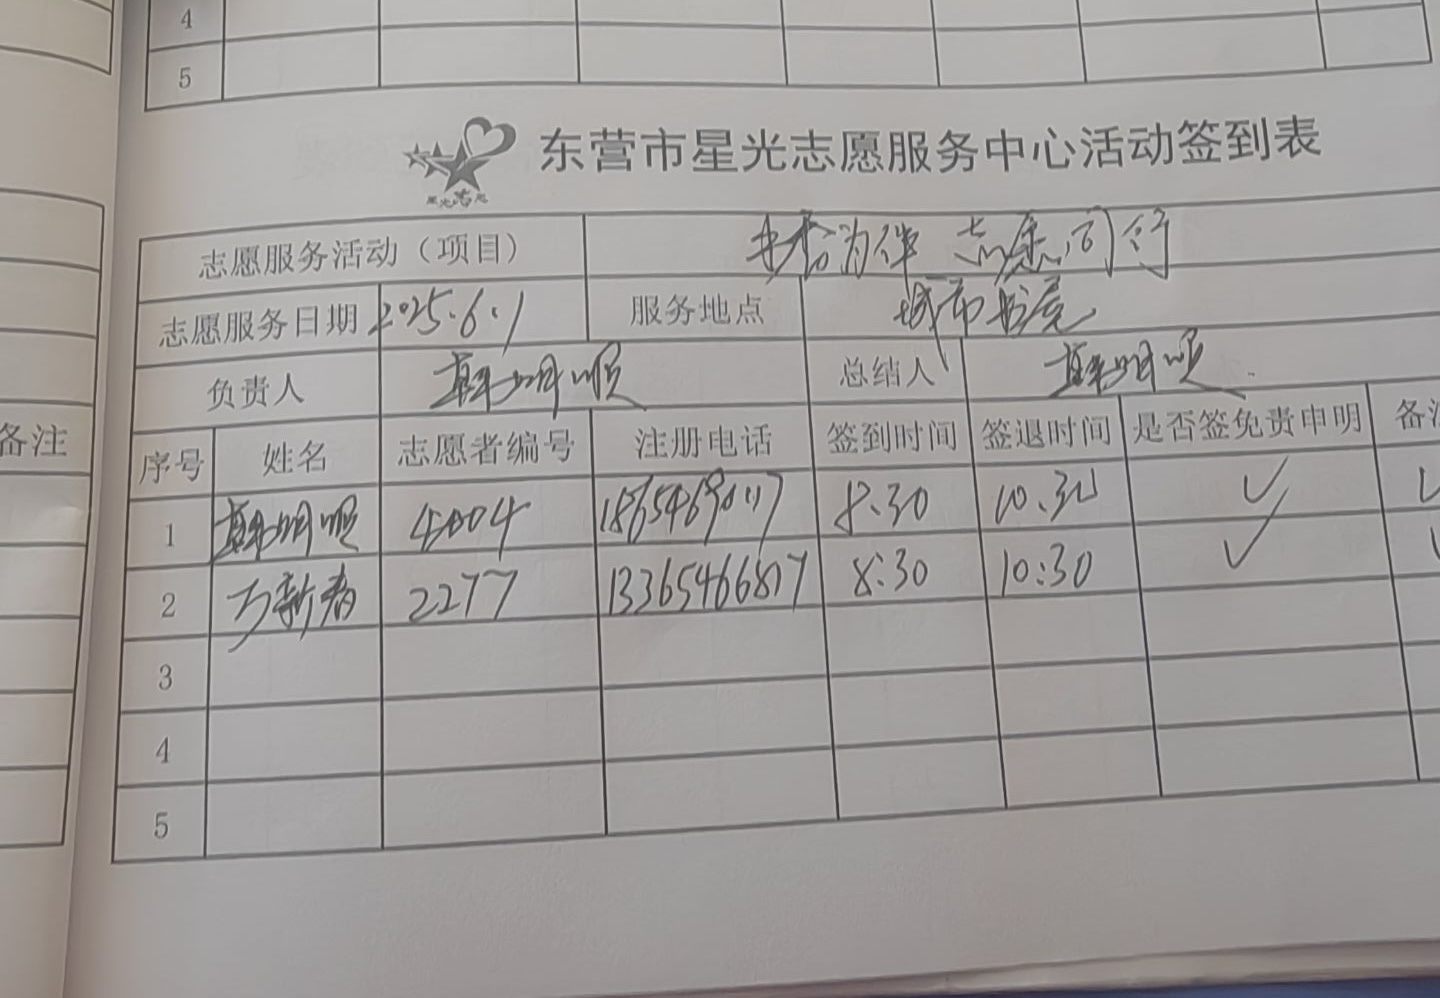 4
5
星光志愿
东营市星光志愿服务中心活动签到表
志愿服务活动（项目） 书香为伴 志愿同行
志愿服务日期 2025.6.1 服务地点 城市书房
负责人 韩明顺 总结人 韩明顺
备注
序号 姓名 志愿者编号 注册电话 签到时间 签退时间 是否签免责申明 备注
1 韩明顺 4004 8:30 10:30 ✓
2 万新春 2277 13365466817 8:30 10:30 ✓
3
4
5